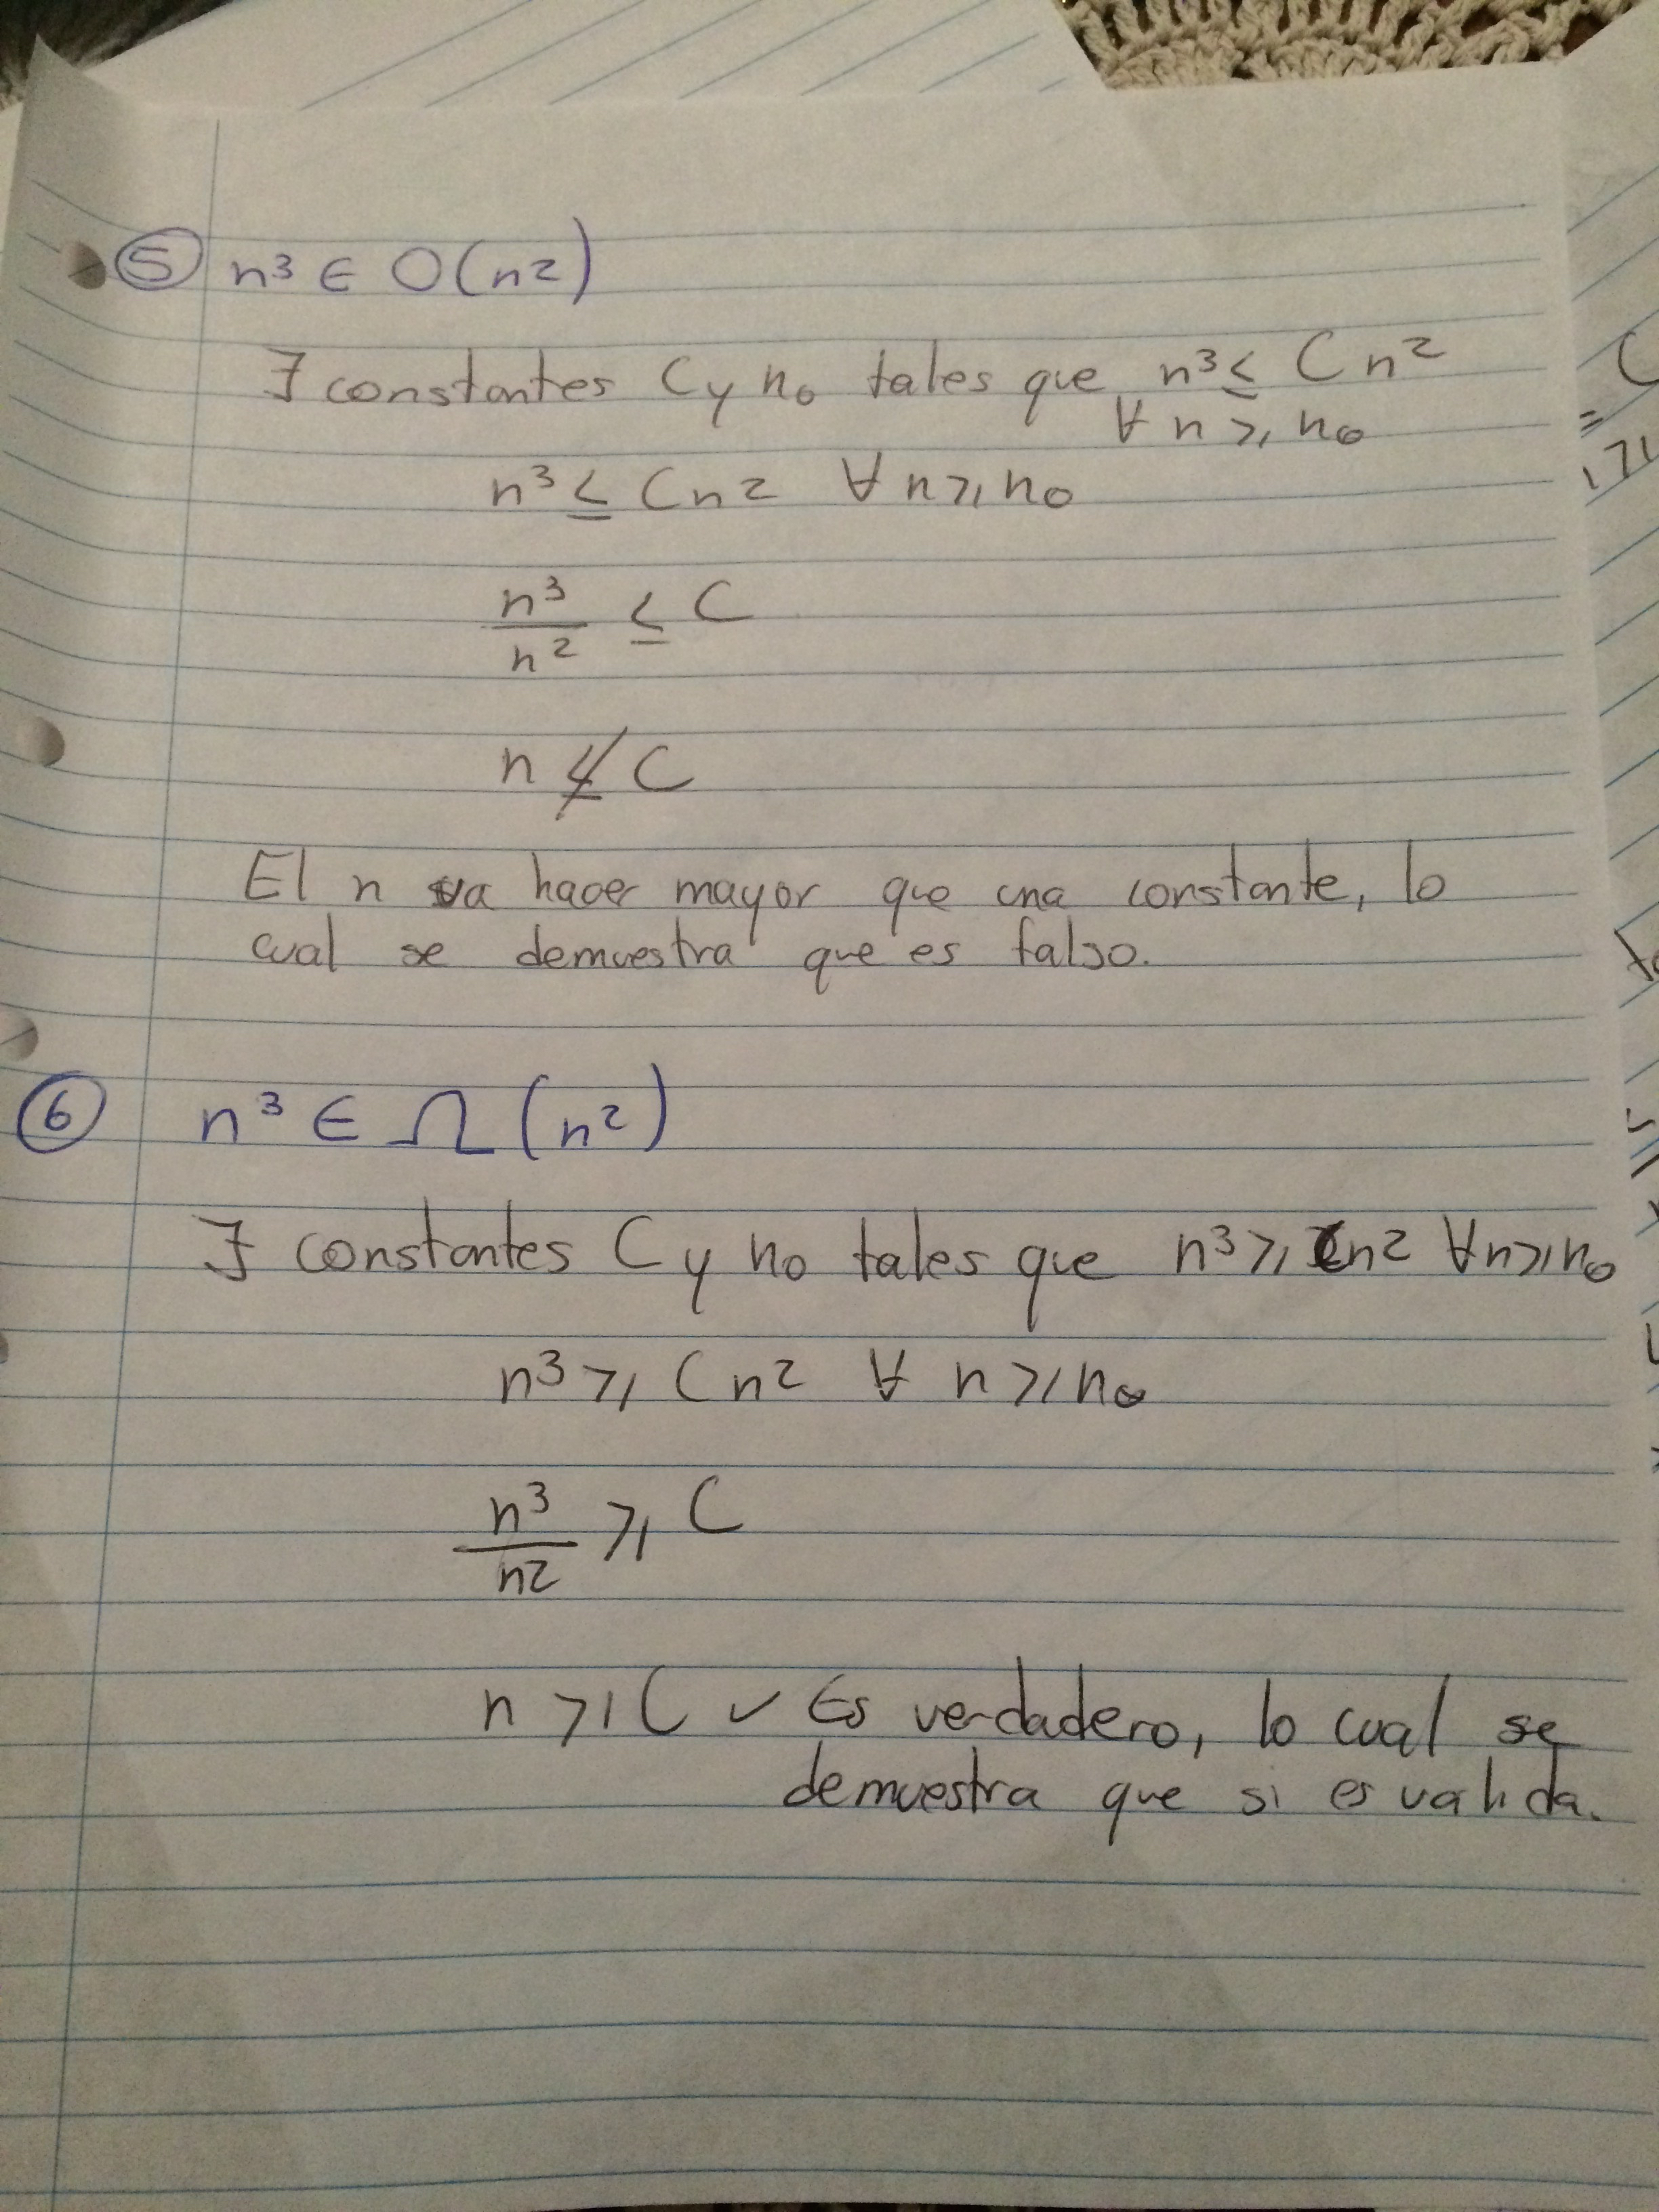 5 n³ ∈ O(n²)
∃ constantes C y n₀ tales que n³ ≤ Cn²
∀ n ≥ n₀
n³ ≤ Cn² ∀ n ≥ n₀
n³/n² ≤ C
n ≰ C
El n va hacer mayor que una constante, lo
cual se demuestra que es falso.
6 n³ ∈ Ω(n²)
∃ constantes C y n₀ tales que n³ ≥ Cn² ∀n ≥ n₀
n³ ≥ Cn² ∀ n ≥ n₀
n³/n² ≥ C
n ≥ C ✓ Es verdadero, lo cual se
demuestra que si es valida.